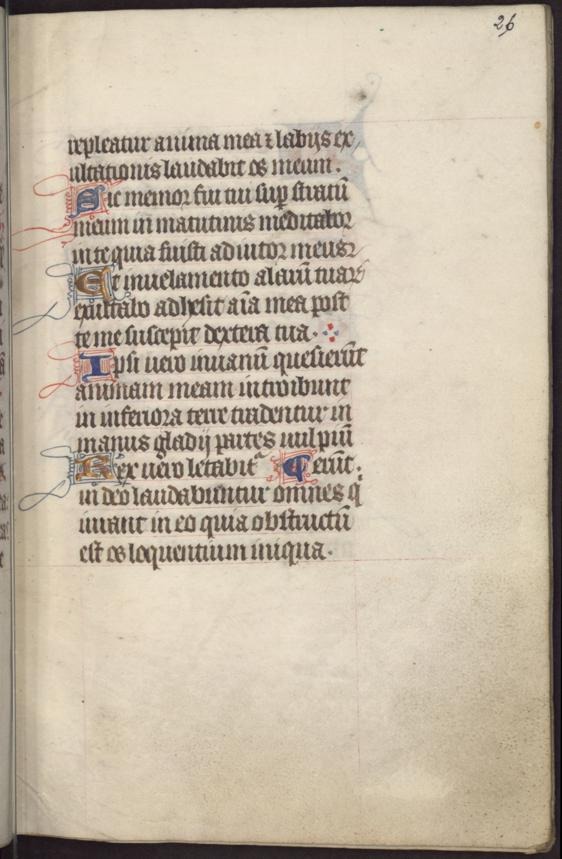 26
repleatur anima mea ⁊ labijs ex
ultationis laudabit os meum.
Sic memor fui tui sup̱ stratū
meum in matutinis meditabor
in te quia fuisti adiutor meus
Et in uelamento alarū tuaꝝ
exultabo adhesit aīa mea post
te me suscepit dextera tua.
Ipsi uero in uanū quesierūt
animam meam introibunt
in inferiora terre tradentur in
manus gladij partes uulpiū
Rex uēro letabit᷑ Terūt.
in deo laudabuntur omnes q̇
iurant in eo quia obstructū
est os loquentium iniqua.